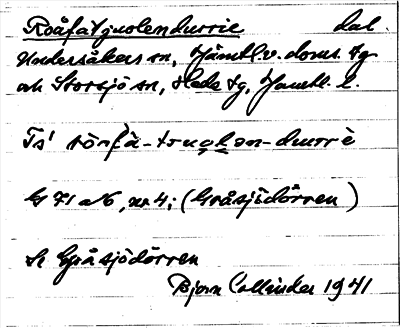 Roåfatjuolendurrie dal.
Undersåkers sn, Jämtl. v. doms. tg
och Storsjö sn, Hede tg, Jämtl. l.
G 71 a 6, nr 4; (Gråsjödörren)
Se Gråsjödörren
Björn Collinder 1941